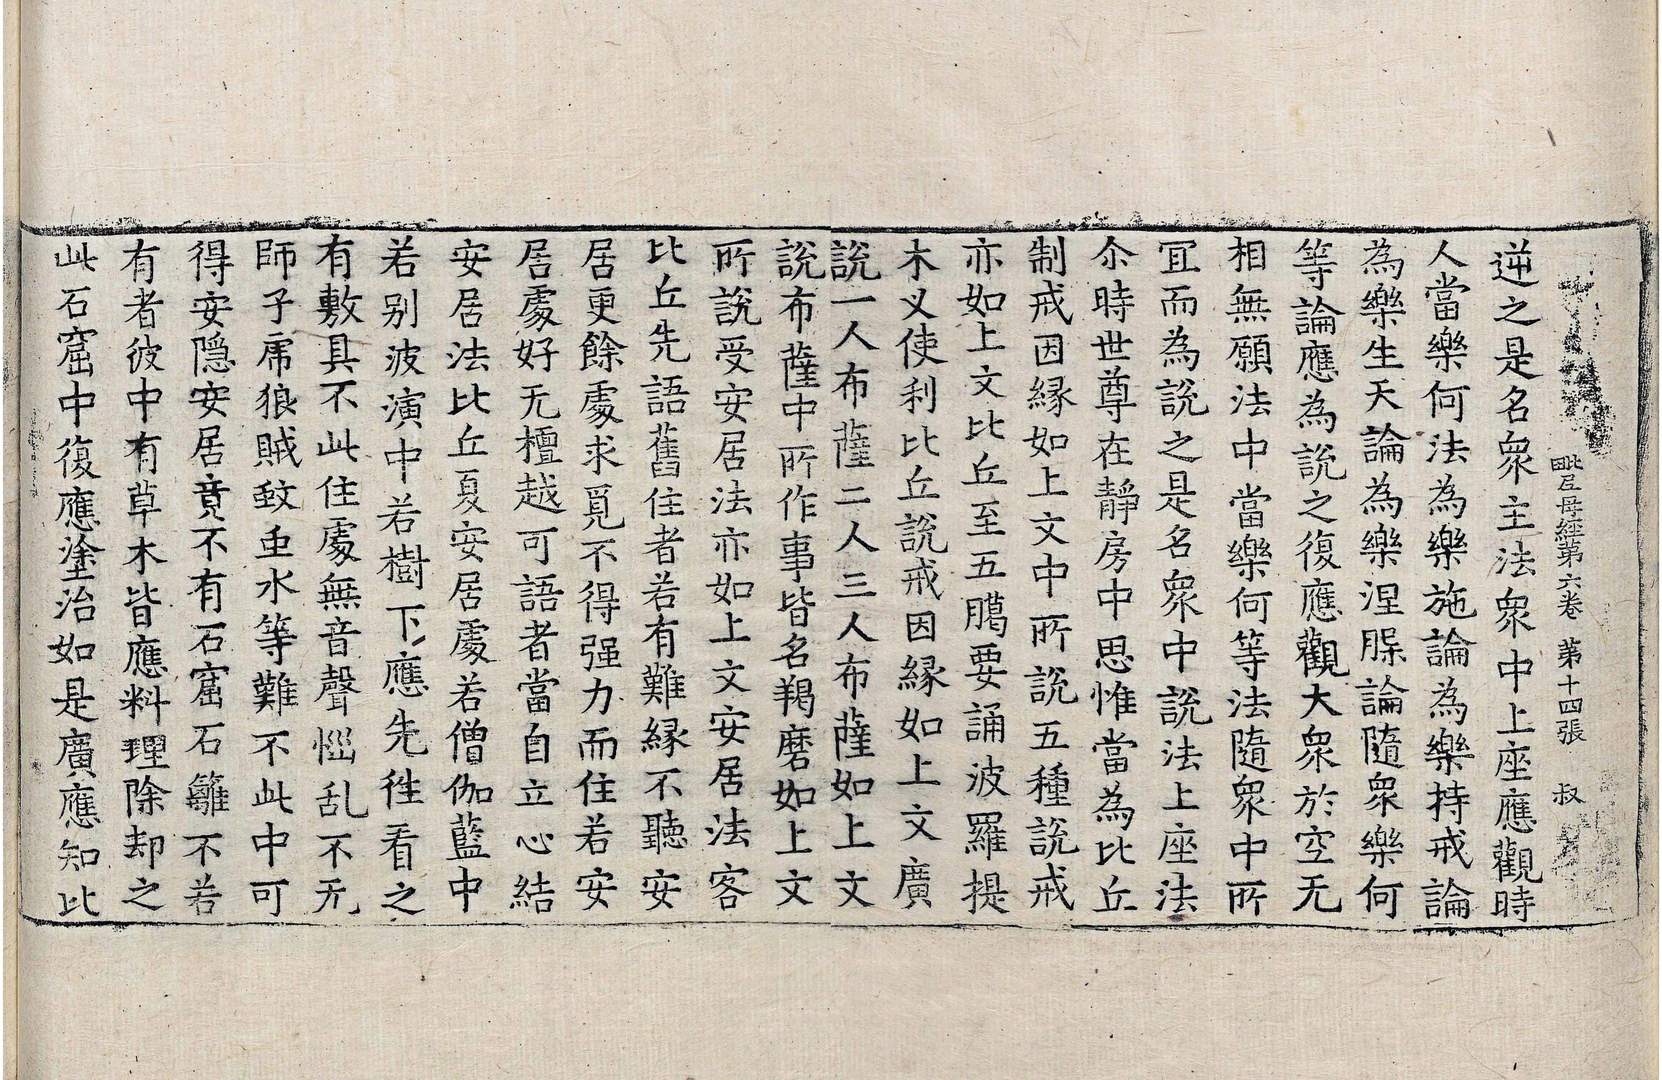 毗尼母經第六卷 第十四張 叔
逆之是名衆主法衆中上座應觀時
人當樂何法為樂施論為樂持戒論
為樂生天論為樂涅槃論隨衆樂何
等論應為說之復應觀大衆於空无
相無願法中當樂何等法隨衆中所
冝而為說之是名衆中說法上座法
尒時世尊在靜房中思惟當為比丘
制戒因縁如上文中所說五種說戒
亦如上文比丘至五臈要誦波羅提
木义使利比丘說戒因縁如上文廣
說一人布薩二人三人布薩如上文
說布薩中所作事皆名羯磨如上文
所說受安居法亦如上文安居法客
比丘先語舊住者若有難縁不聽安
居更餘處求覓不得强力而住若安
居處好无檀越可語者當自立心結
安居法比丘夏安居處若僧伽藍中
若别波演中若樹下應先徃看之
有敷具不此住處無音聲惱乱不无
師子虎狼賊蚊虫水等難不此中可
得安隠安居竟不有石窟石龕不若
有者彼中有草木皆應料理除却之
此石窟中復應塗治如是廣應知比